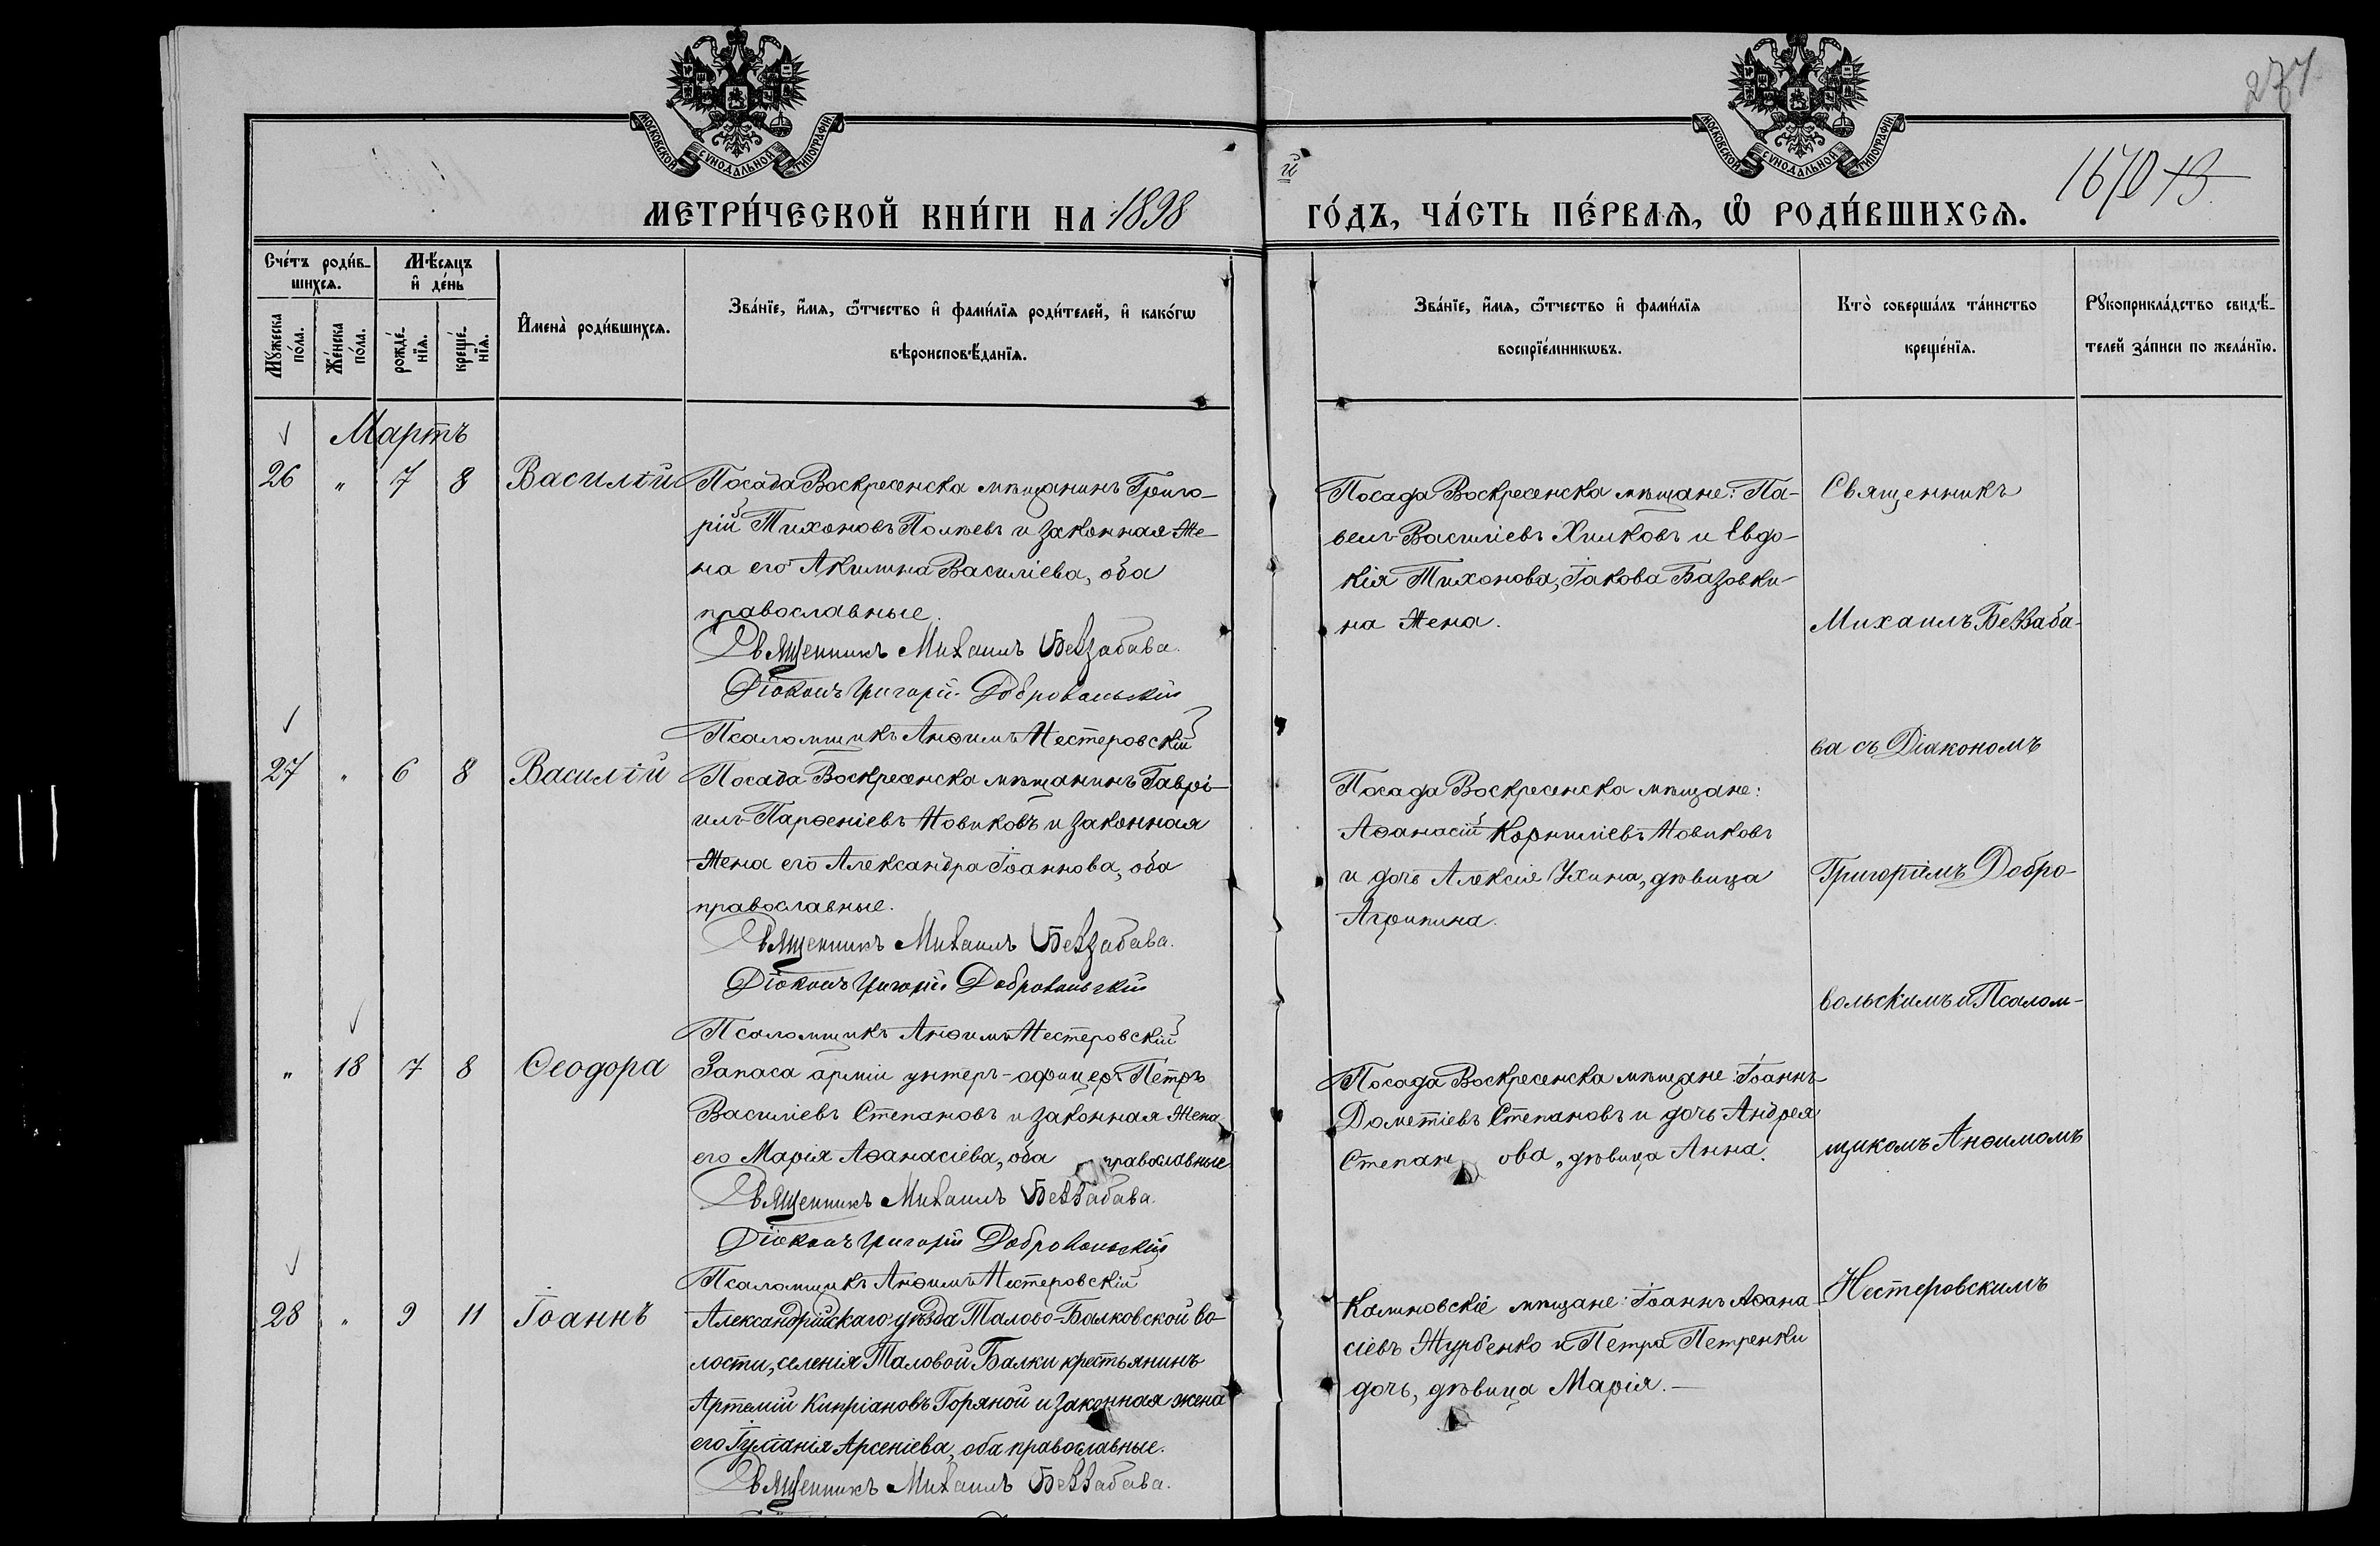 274
МОСКОВСКОЙ СУНОДАЛЬНОЙ ТИПОГРАФІИ
МОСКОВСКОЙ СУНОДАЛЬНОЙ ТИПОГРАФІИ
МЕТРИ́ЧЕСКОЙ КНИ́ГИ НА 1898
й
ГО́ДЪ, ЧА́СТЬ ПЕ́РВАѦ, Ѡ҆ РОДИ́ВШИХСѦ.
Сче́тъ роди́в-
шихсѧ.
Мѣ́сяцъ
и҆ де́нь
Мꙋ́жеска
по́ла.
Же́нска
по́ла.
рожде́-
нїѧ.
креще́-
нїѧ.
И҆мена̀ роди́вшихсѧ.
Зва́нїе, и҆́мѧ, ѻ҆́тчество и҆ фами́лїѧ роди́телей, и҆ како́гѡ
вѣроисповѣ́данїѧ.
Зва́нїе, и҆́мѧ, ѻ҆́тчество и҆ фами́лїѧ
воспрїе́мникѡвъ.
Кто̀ соверша́лъ та́инство
креще́нїѧ.
Рꙋкоприкла́дство свидѣ́-
телей за́писи по жела́нїю.
Мартъ
26 " 7 8 Василій
Посада Воскресенска мѣщанинъ Григо-
рій Тихоновъ Полѣевъ и законная же-
на его Акилина Василіева, оба
православные.
Священникъ Михаилъ Беззабава.
Діаконъ Григорій Добровольскій
Псаломщикъ Анѳимъ Нестеровскій
Посада Воскресенска мѣщане: Па-
велъ Василіевъ Хилковъ и Евдо-
кія Тихонова, Іакова Базовки-
на жена.
27 " 6 8 Василій
Посада Воскресенска мѣщанинъ Гаврі-
илъ Парѳеніевъ Новиковъ и законная
жена его Александра Іоаннова, оба
православные.
Священникъ Михаилъ Беззабава.
Діаконъ Григорій Добровольскій
Псаломщикъ Анѳимъ Нестеровскій
Посада Воскресенска мѣщане:
Аѳанасій Корниліевъ Новиковъ
и дочь Алексія Ухина, дѣвица
" 18 7 8 Ѳеодора
Запаса арміи унтеръ-офицеръ Петръ
Василіевъ Степановъ и законная жена
его Марія Аѳанасіева, оба православные
Священникъ Михаилъ Беззабава.
Діаконъ Григорій Добровольскій
Псаломщикъ Анѳимъ Нестеровскій
Посада Воскресенска мѣщане: Іоаннъ
Дометіевъ Степановъ и дочь Андрея
Степанова, дѣвица Анна.
28 " 9 11 Іоаннъ
Александрійскаго уѣзда Талово-Балковской во-
лости, селенія Таловой Балки крестьянинъ
Артемій Кипріановъ Горяной и законная жена
его Іуліанія Арсеніева, оба православные.
Священникъ Михаилъ Беззабава.
Калиновскіе мѣщане: Іоаннъ Аѳана-
сіевъ Журбенко и Петра Петренки
дочь, дѣвица Марія.—
Священникъ
Михаилъ Беззаба-
ва съ Діакономъ
Григоріемъ Добро-
вольскимъ и Псалом-
щикомъ Анѳимомъ
Нестеровскимъ